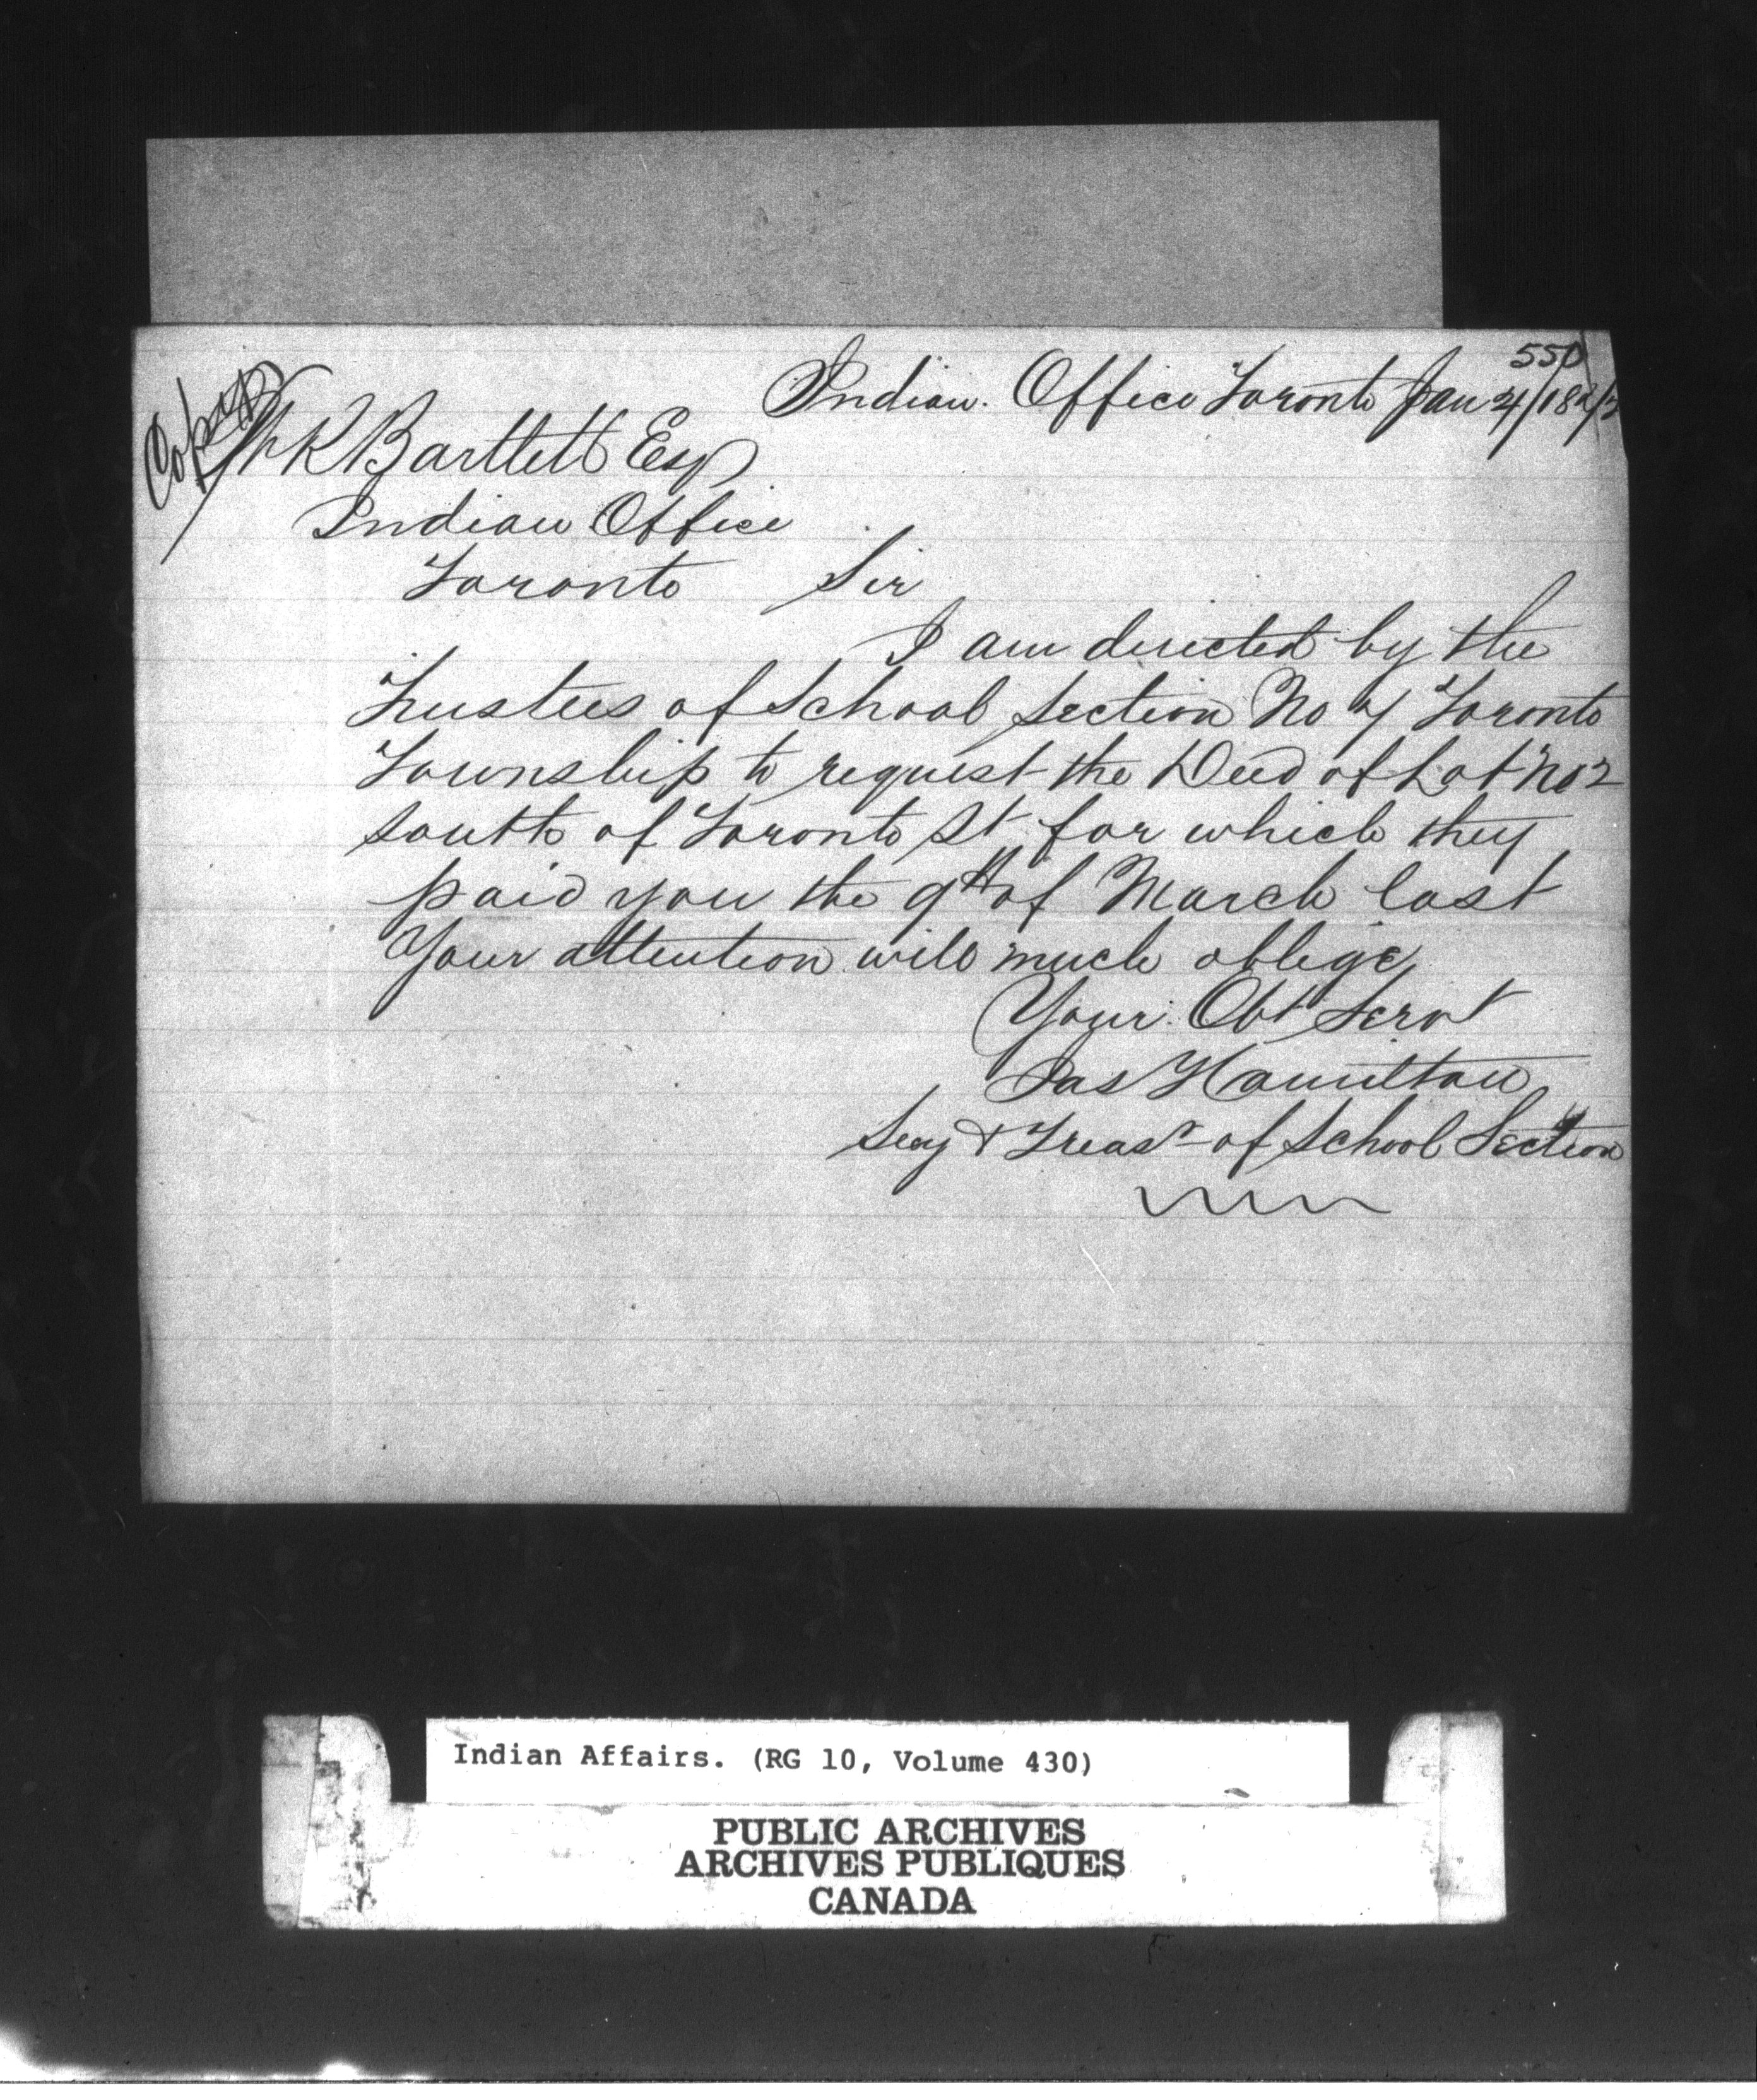 550
Indian Office Toronto Jan 4/
Copy
W R Bartlett Esq
Indian Office
Toronto Sir
I am directed by the
Trustees of School Section No 7 Toronto
Township to request the Deed of Lot No 2
South of Toronto St for which they
paid you the 9th of March last
Your attention will much oblige
Your Obt Servt
Jas Hamilton
Secy & Treasr of School Section
Indian Affairs. (RG 10, Volume 430)
PUBLIC ARCHIVES
ARCHIVES PUBLIQUES
CANADA